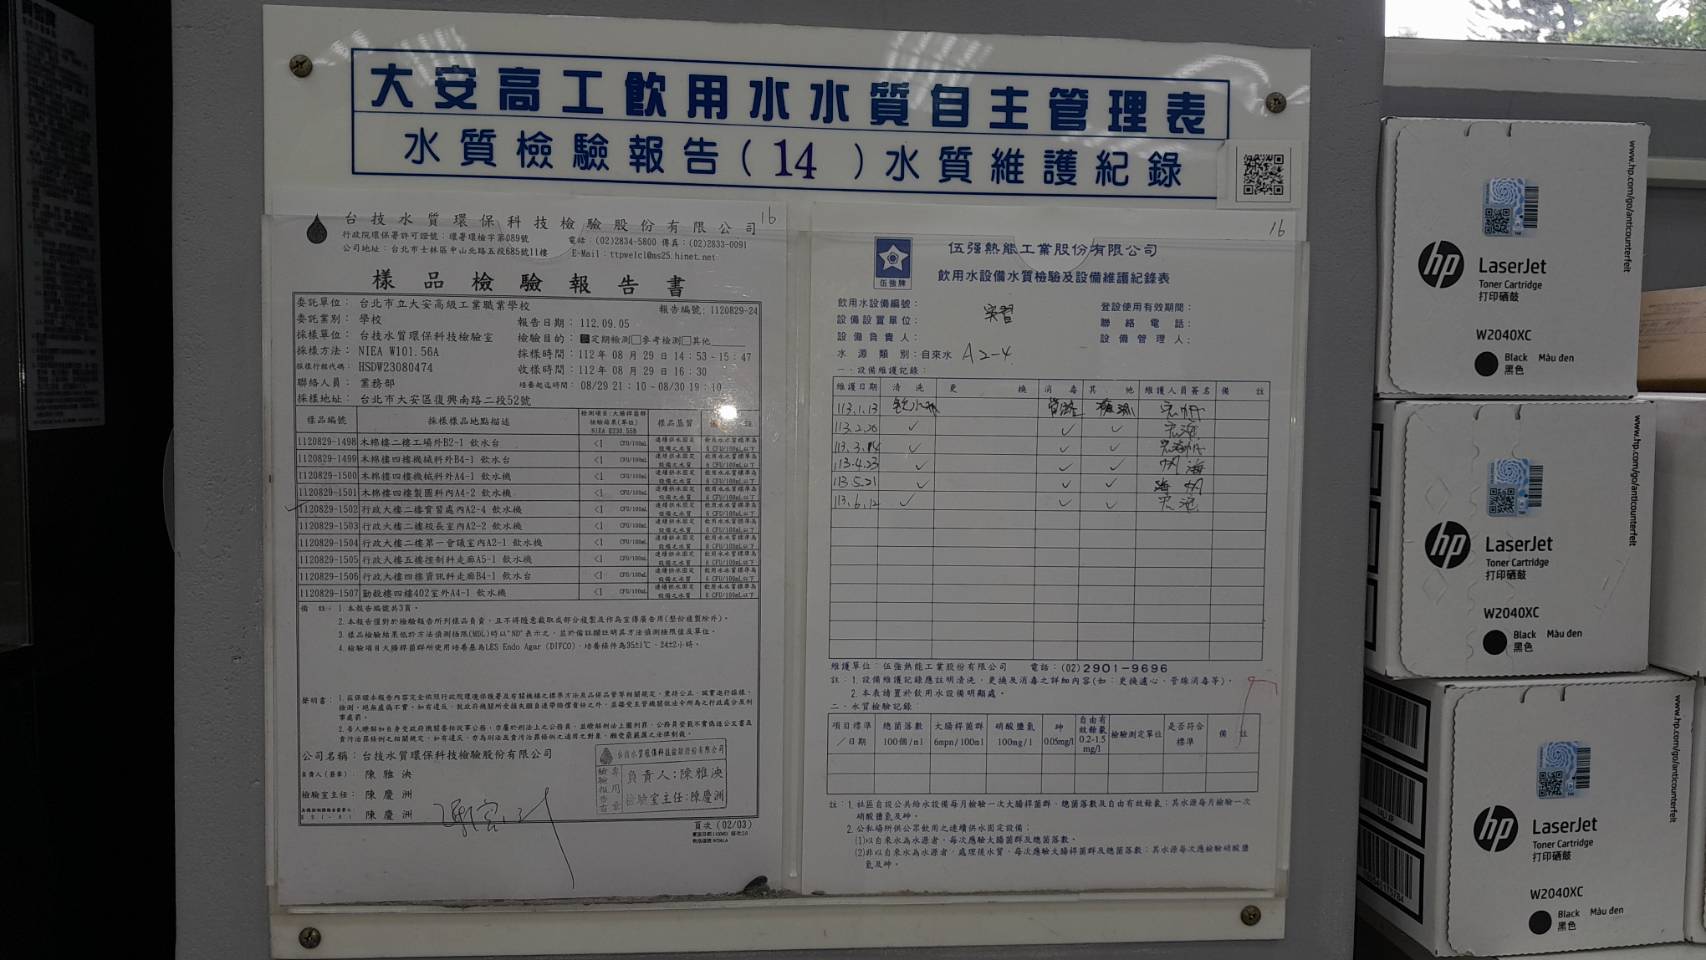 大安高工飲用水水質自主管理表
水質檢驗報告(14)水質維護紀錄
16
台技水質環保科技檢驗股份有限公司
行政院環保署許可證號：環署環檢字第089號
電話：(02)2834-5800 傳真：(02)2833-0091
公司地址：台北市士林區中山北路五段685號11樓
E-Mail：ttpwelcl@ms25.hinet.net
樣品檢驗報告書
委託單位：台北市立大安高級工業職業學校
報告編號：1120829-24
委託業別：學校
報告日期：112.09.05
採樣單位：台技水質環保科技檢驗室
檢驗目的：■定期檢測□參考檢測□其他
採樣方法：NIEA W101.56A
採樣時間：112年08月29日14:53-15:47
採樣行程代碼：HSDW23080474
收樣時間：112年08月29日16:30
聯絡人員：業務部
培養起迄時間：08/29 21:10-08/30 19:10
採樣地址：台北市大安區復興南路二段52號
樣品編號 採樣樣品地點描述 檢測項目:大腸桿菌群 檢驗結果(單位) NIEA E230.55B 樣品基質
1120829-1498 木棉樓二樓工場外B2-1 飲水台 <1 CFU/100mL
1120829-1499 木棉樓四樓機械科外B4-1 飲水台 <1 CFU/100mL
1120829-1500 木棉樓四樓機械科外A4-1 飲水機 <1 CFU/100mL
1120829-1501 木棉樓四樓製圖科內A4-2 飲水機 <1 CFU/100mL
1120829-1502 行政大樓二樓實習處內A2-4 飲水機 <1 CFU/100mL
1120829-1503 行政大樓二樓校長室內A2-2 飲水機 <1 CFU/100mL
1120829-1504 行政大樓二樓第一會議室內A2-1 飲水機 <1 CFU/100mL
1120829-1505 行政大樓五樓控制科走廊A5-1 飲水機 <1 CFU/100mL
1120829-1506 行政大樓四樓資訊科走廊B4-1 飲水台 <1 CFU/100mL
1120829-1507 勤毅樓四樓402室外A4-1 飲水機 <1 CFU/100mL
備 註：1.本報告編號共3頁。
2.本報告僅對於檢驗報告所列樣品負責，且不得隨意截取或部分複製及作為宣傳廣告用(整份複製除外)。
3.樣品檢驗結果低於方法偵測極限(MDL)時以"ND"表示之，並於備註欄註明其方法偵測極限值及單位。
4.檢驗項目大腸桿菌群所使用培養基為LES Endo Agar (DIFCO)，培養條件為35±1℃，24±2小時。
公司名稱：台技水質環保科技檢驗股份有限公司
負責人(簽章)：陳雅泱
檢驗室主任：陳慶洲
陳慶洲
台技水質環保科技檢驗股份有限公司
檢驗報告專用章
負責人：陳雅泱
檢驗室主任：陳慶洲
頁次 (02/03)
16
伍強牌
伍强熱能工業股份有限公司
飲用水設備水質檢驗及設備維護紀錄表
飲用水設備編號：
登設使用有效期間：
設備設置單位：實習
聯絡電話：
設備負責人：
設備管理人：
水源類別：自來水 A2-4
一、設備維護記錄：
維護日期 清洗 更換 消毒 其他 維護人員簽名 備註
113.1.13
113.2.26 ✓ ✓ ✓
113.3.14 ✓ ✓
113.4.23 ✓ ✓ ✓
113.5.21 ✓ ✓ ✓
113.6.12 ✓ ✓ ✓
維護單位：伍强熱能工業股份有限公司 電話：(02)2901-9696
註：1.設備維護記錄應註明清洗、更換及消毒之詳細內容(如：更換濾心、管線消毒等)。
2.本表請置於飲用水設備明顯處。
二、水質檢驗記錄：
項目標準／日期 總菌落數 100個/ml 大腸桿菌群 6mpn/100ml 硝酸鹽氮 100mg/l 砷 0.05mg/l 自由有效餘氯 0.2-1.5 mg/l 檢驗測定單位 是否符合標準 備註
註：1.社區自設公共給水設備每月檢驗一次大腸桿菌群、總菌落數及自由有效餘氯；其水源每月檢驗一次
硝酸鹽氮及砷。
2.公私場所供公眾飲用之連續供水固定設備：
(1)以自來水為水源者，每次應驗大腸桿菌群及總菌落數。
(2)非以自來水為水源者，處理後水質，每次應驗大腸桿菌群及總菌落數；其水源每次應檢驗硝酸鹽
氮及砷。
www.hp.com/go/anticounterfeit
hp
LaserJet
Toner Cartridge
打印硒鼓
W2040XC
Black Màu đen
黑色
www.hp.com/go/anticounterfeit
hp
LaserJet
Toner Cartridge
打印硒鼓
W2040XC
Black Màu đen
黑色
www.hp.com/go/anticounterfeit
hp
LaserJet
Toner Cartridge
打印硒鼓
W2040XC
Black Màu đen
黑色